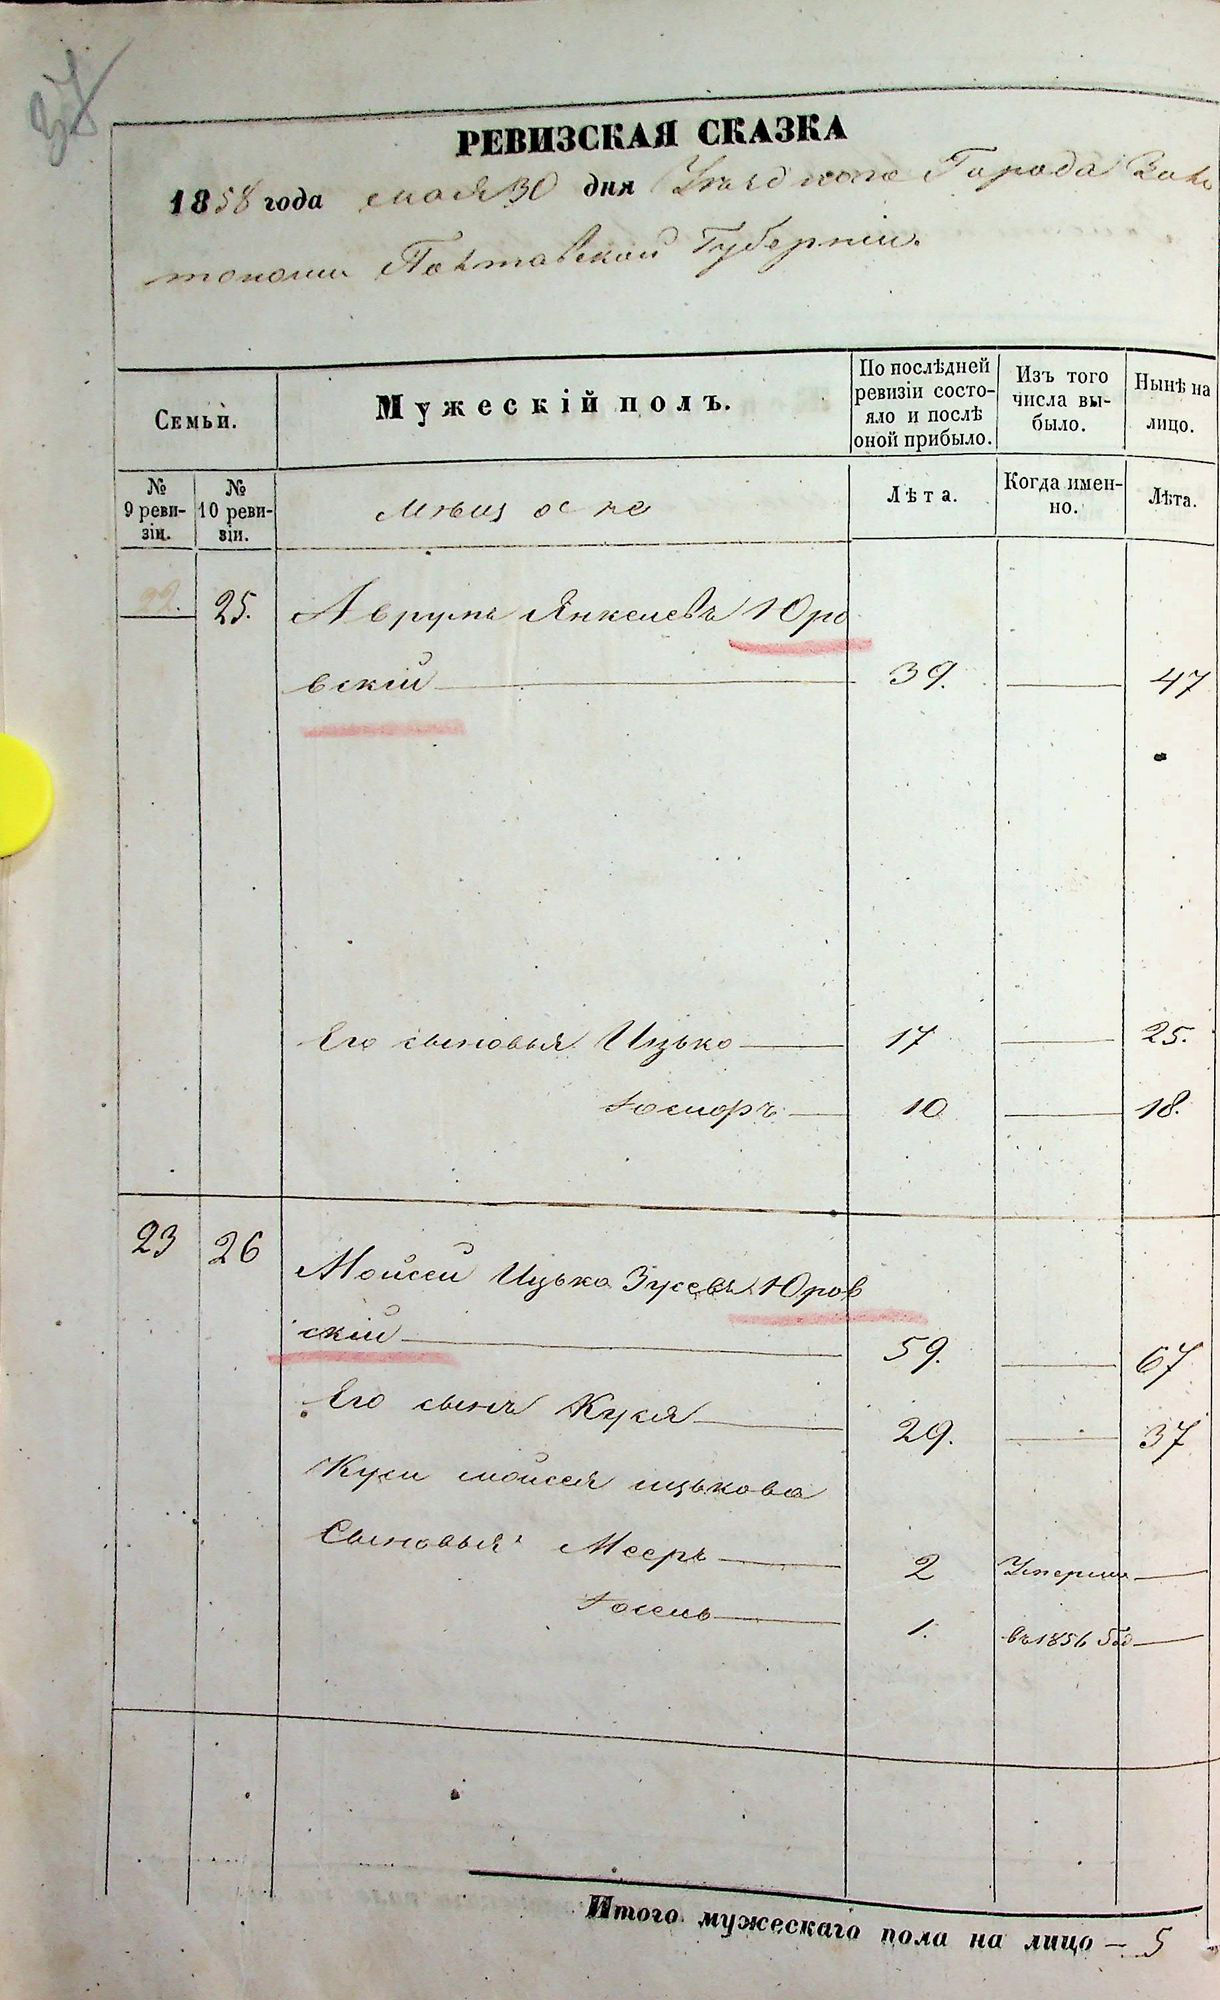 37
РЕВИЗСКАЯ СКАЗКА
1858 года мая 30 дня Уезднаго Города Золо
тоноши Полтавской Губерніи.
Семьи.
Мужескій полъ.
По послѣдней ревизіи состо-
яло и послѣ оной прибыло.
Изъ того числа вы-
было.
Нынѣ на лицо.
№ 9 реви-
зіи.
№ 10 реви-
зіи.
Лѣта.
Когда имен-
но.
Лѣта.
22. 25. Аврумъ Янкелевъ Юро
вскій 39. 47
Его сыновья Ицько 17 25.
10 18.
23 26 Мойсей Ицько Зусевъ Юров
скій 59. 67
Его сынъ Куся 29. 37
Куси Мойсея Ицькова
Сыновья Мееръ 2 Умерли
1. въ 1856 год
Итого мужескаго пола на лицо – 5